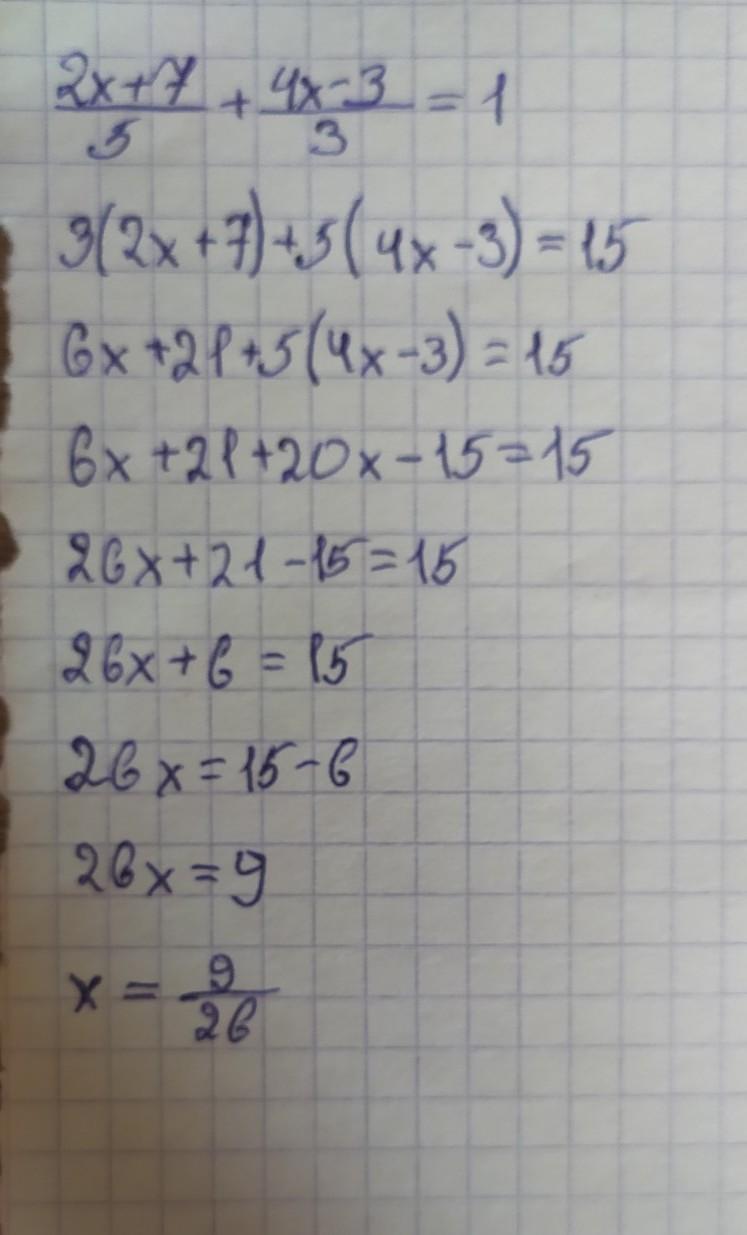 (2x+7)/5 + (4x-3)/3 = 1
3(2x+7)+5(4x-3)=15
6x+21+5(4x-3)=15
6x+21+20x-15=15
26x+21-15=15
26x+6=15
26x=15-6
26x=9
x=9/26